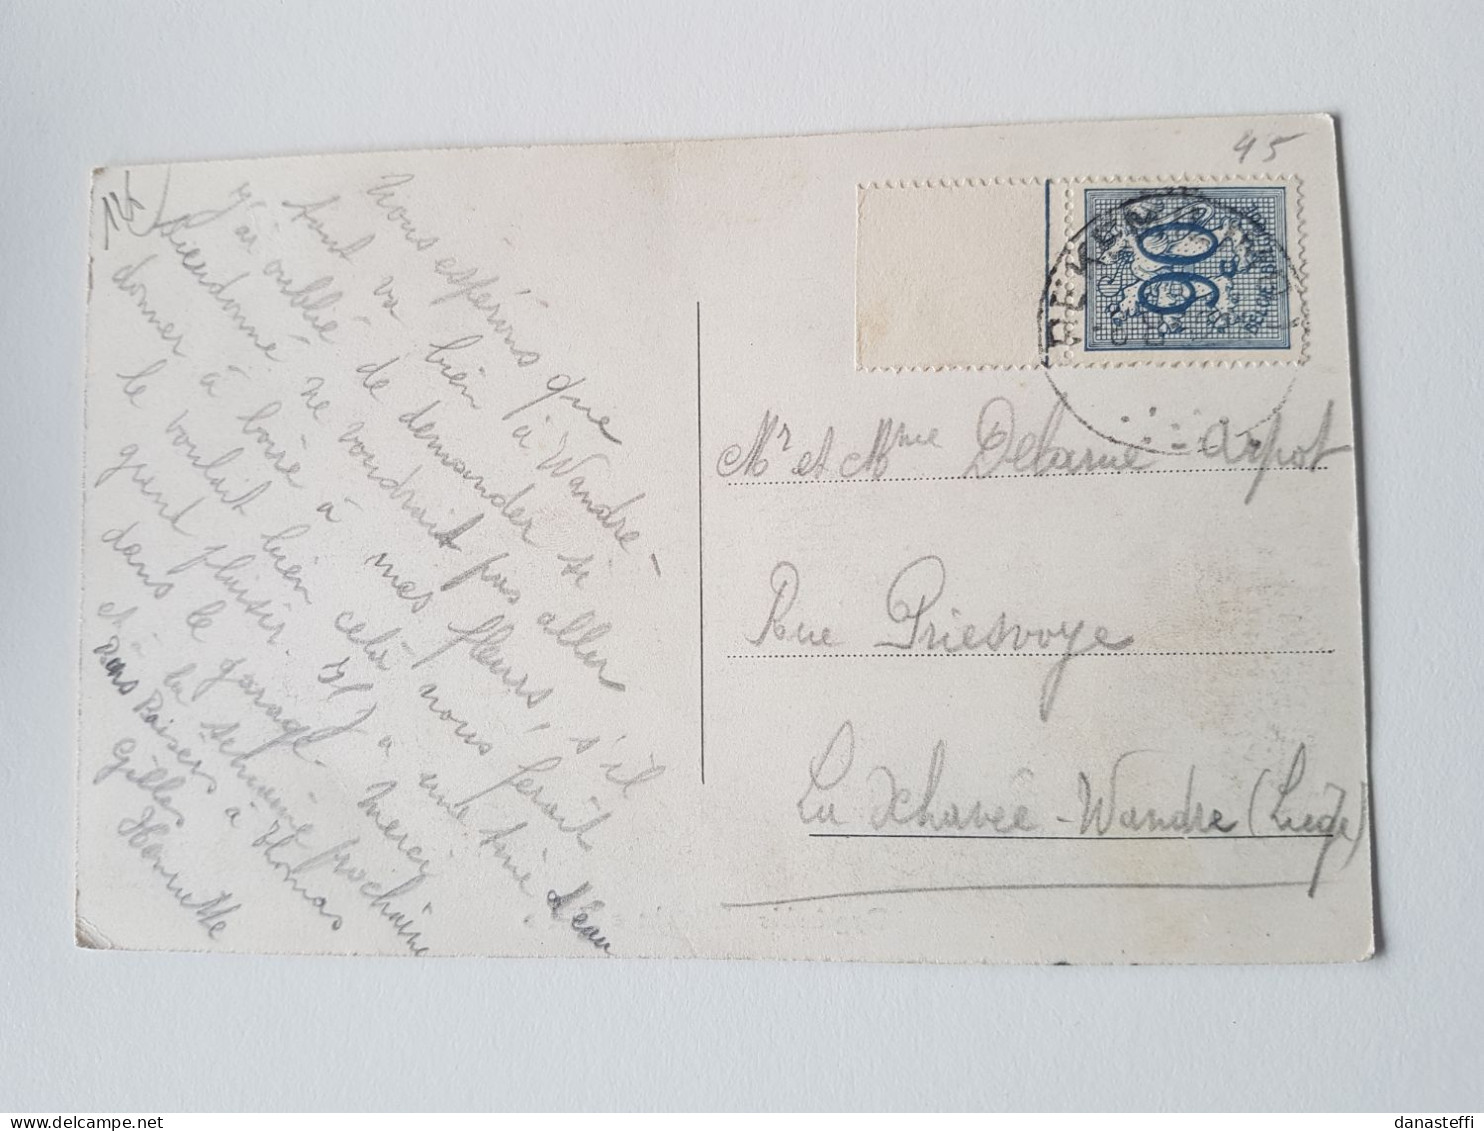 Nous espérons que
tout va bien à Wandre -
J'ai oublié de demander si
Dieudonné ne voudrait pas aller
donner à boire à mes fleurs, s'il
le voulait bien cela nous ferait
grand plaisir. Il y a une tine d'eau
dans le garage. Merci
et à la semaine prochaine
Bons Baisers à Thomas
Gilles
Henriette
45
90 c
BELGIE-BELGIQUE
Mr et Mme Delarue Arpot
Rue Priesvoye
La Xhavée - Wandre (Liège)
danasteffi